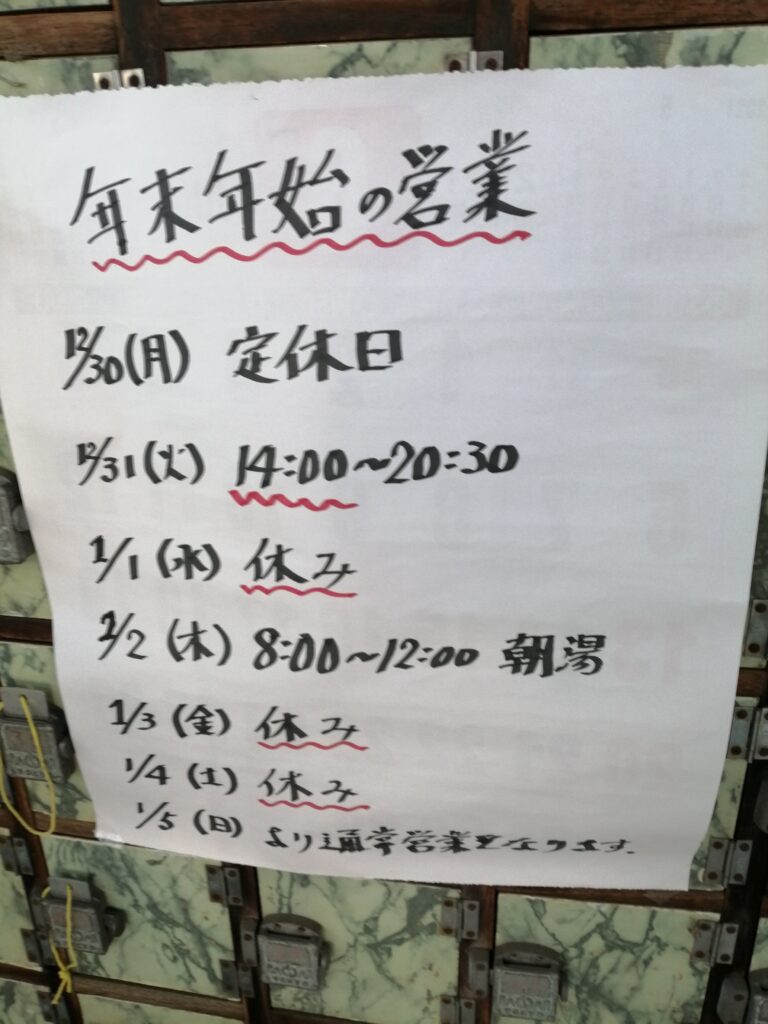 年末年始の営業
12/30(月) 定休日
12/31(火) 14:00~20:30
1/1(水) 休み
1/2(木) 8:00~12:00 朝湯
1/3(金) 休み
1/4(土) 休み
1/5(日) より通常営業となります.